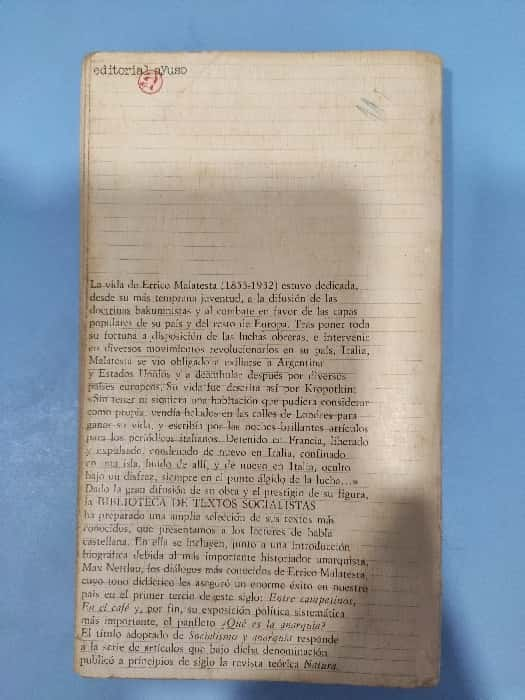 editorial ayuso
La vida de Errico Malatesta (1853-1932) estuvo dedicada,
desde su más temprana juventud, a la difusión de las
doctrinas bakuninistas y al combate en favor de las capas
populares de su país y del resto de Europa. Tras poner toda
su fortuna a disposición de las luchas obreras, e intervenir
en diversos movimientos revolucionarios en su país, Italia,
Malatesta se vio obligado a exiliarse a Argentina
y Estados Unidos y a deambular después por diversos
países europeos. Su vida fue descrita así por Kropotkin:
«Sin tener ni siquiera una habitación que pudiera considerar
como propia, vendía helados en las calles de Londres para
ganar su vida, y escribía por las noches brillantes artículos
para los periódicos italianos. Detenido en Francia, liberado
y expulsado, condenado de nuevo en Italia, confinado
en una isla, huido de allí, y de nuevo en Italia, oculto
bajo un disfraz, siempre en el punto álgido de la lucha...»
Dado la gran difusión de su obra y el prestigio de su figura,
la BIBLIOTECA DE TEXTOS SOCIALISTAS
ha preparado una amplia selección de sus textos más
conocidos, que presentamos a los lectores de habla
castellana. En ella se incluyen, junto a una introducción
biográfica debida al más importante historiador anarquista,
Max Nettlau, los diálogos más conocidos de Errico Malatesta,
cuyo tono didáctico les aseguró un enorme éxito en nuestro
país en el primer tercio de este siglo: Entre campesinos,
En el café y, por fin, su exposición política sistemática
más importante, el panfleto ¿Qué es la anarquía?
El título adoptado de Socialismo y anarquía responde
a la serie de artículos que bajo dicha denominación
publicó a principios de siglo la revista teórica Natura.